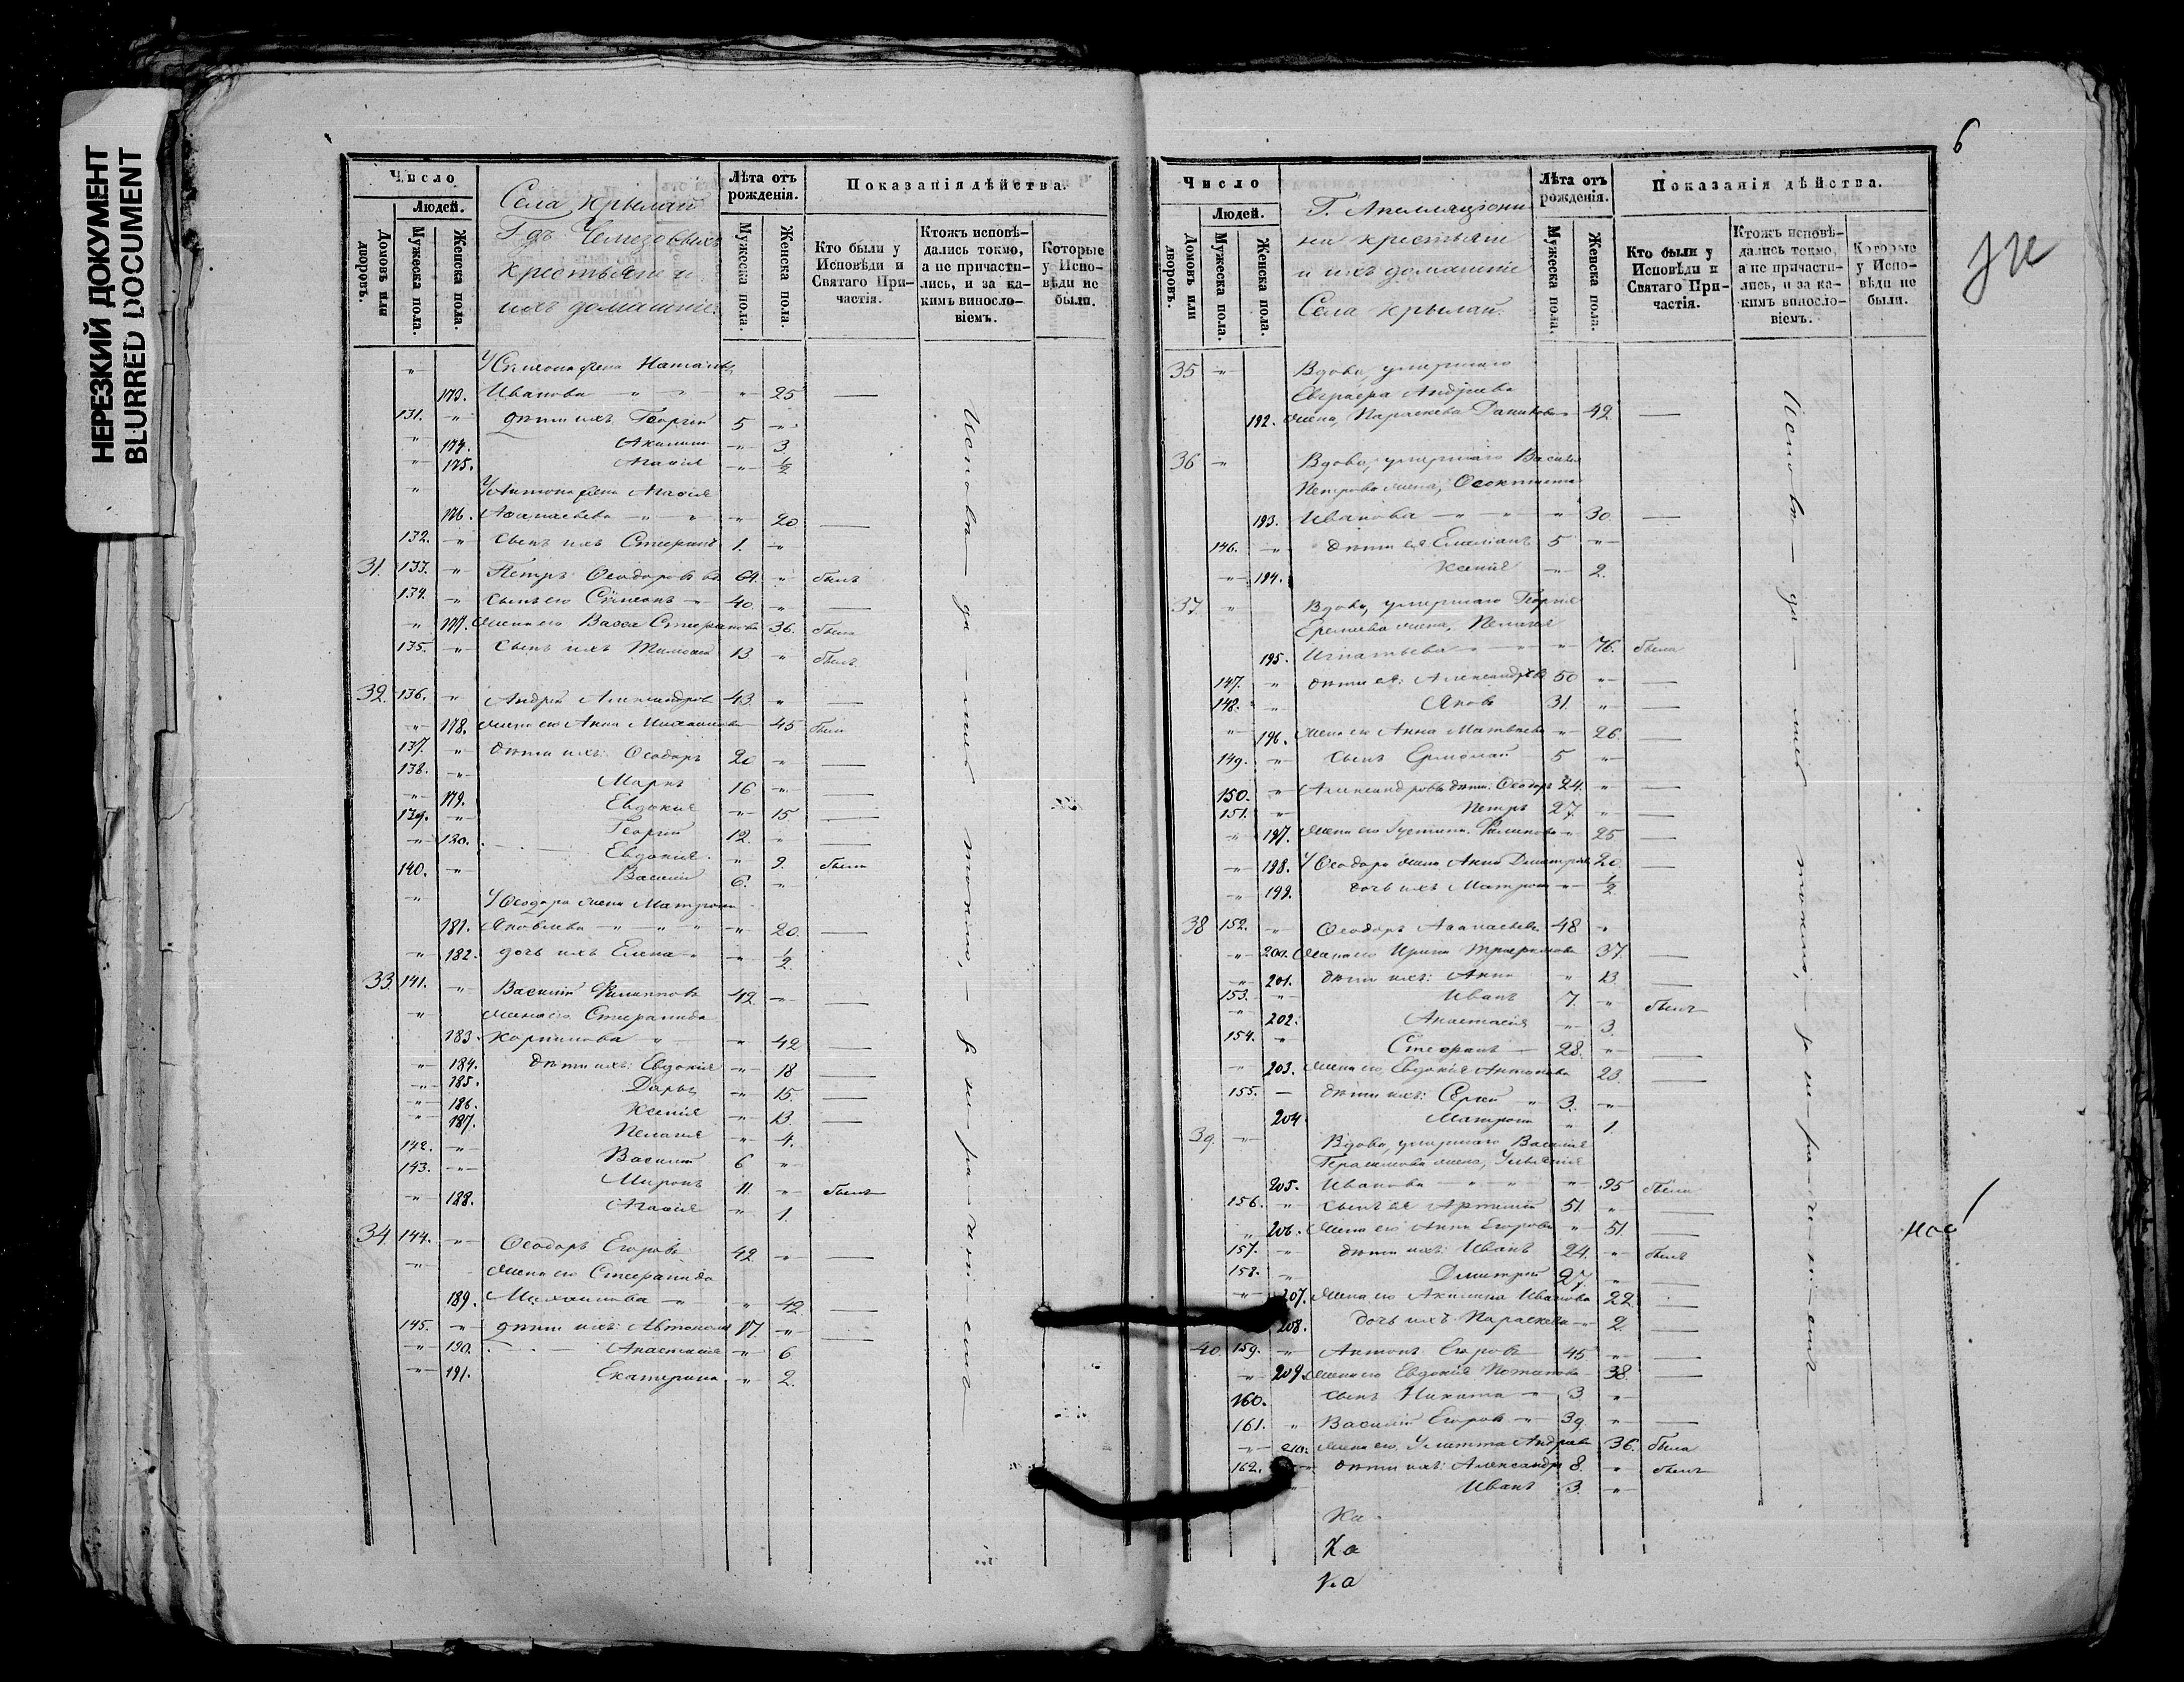 НЕРЕЗКИЙ ДОКУМЕНТ
BLURRED DOCUMENT
Число
Людей.
Домовъ или дворовъ.
Мужеска пола.
Женска пола.
Села Крылай
Крестьяне и
ихъ домашніе.
Лѣта отъ рожденія.
Мужеска пола.
Женска пола.
Показанія дѣйства.
Кто были у Исповѣди и Святаго Причастія.
Ктожъ исповѣдались токмо, а не причастились, и за какимъ винословіемъ.
Которые у Исповѣди не были.
173. Иванова " " " 25
131. " дѣти ихъ Георгій 5 "
" 174. Акилина " 3
" 175. Агафія " ½
" У Антона жена Агафія
176. Аѳанасьева " " " 20
132. " Сынъ ихъ Стефанъ 1. "
31. 133. " Петръ Ѳеодоровъ 64 " былъ
134. " Сынъ его Сѵмеонъ " 40 "
" 177. Жена его Васса Стефанова 36. была
135. " Сынъ ихъ Тимоѳей 13 " былъ
32. 136. " Андрей Александровъ 43 "
" 178. Жена его Анна Михайлова 45 была
137. " Дѣти ихъ: Ѳеодоръ 20 "
138. " Маркъ 16 "
" 179. Евдокія " 15
139. " Георгій 12. "
" 180. Евдокія " 9. была
140. " Василій 6. "
" У Ѳеодора жена Матрона
181. Яковлева " " " " 20
" 182. дочь ихъ Елена " " ½
33. 141. " Василій Филипповъ 42 "
" Жена его Стефанида
183. Карпинова " " 42
" 184. Дѣти ихъ: Евдокія " 18
" 185. Дарья " 15
" 186. Ксенія " 13
" 187. Пелагія " 4.
142. " Василій 6 "
143. " Миронъ 11 " былъ
" 188. Агафія " 1.
34. 144. " Ѳеодоръ Егоровъ 42 "
" Жена его Стефанида
189. Михайлова " " 42
145. " дѣти ихъ: Автономъ 17. "
" 190. Анастасія " 6
" 191. Екатерина " 2.
Исповѣ - да - лис токмо,
6
Число
Людей.
Домовъ или дворовъ.
Мужеска пола.
Женска пола.
Г. Апелляціони
на крестьяне
и ихъ домашніе
Села Крылай.
Лѣта отъ рожденія.
Мужеска пола.
Женска пола.
Показанія дѣйства.
Кто были у Исповѣди и Святаго Причастія.
Ктожъ исповѣдались токмо, а не причастились, и за какимъ винословіемъ.
Которые у Исповѣди не были.
35 " Вдова, умершаго
Евграфа Андреева
192. жена, Параскева Данилова 42
36 " Вдова, умершаго Василія
Петрова жена, Ѳеоктиста
193. Иванова " " " 30
146. " Дѣти ея Емеліанъ 5 "
" 194. Ксенія " 2.
37 " Вдова, умершаго Георгія
Еремеева жена, Пелагія
195. Игнатьева " " " 76. была
147. " Дѣти ея: Александръ 50 "
148. " Яковъ 31. "
" 196. Жена его Анна Матвѣева " 26.
149. " Сынъ Ермолай 5 "
150. " Александровы дѣти: Ѳеодоръ 24. "
151. " Петръ 27. "
" 197. Жена его Іустина Филипова " 25
" 198. У Ѳеодора жена Анна Димитріева 20
" 199. Дочь ихъ Матрона " ½
38 152. " Ѳеодоръ Аѳанасьевъ 48 "
" 200. Жена его Ирина Трофимова 37.
" 201. Дѣти ихъ: Анна " 13
153. " Иванъ 7. " былъ
" 202. Анастасія " 3.
154. " Стефанъ 28. "
" 203. Жена его Евдокія Антонова 23
155. Дѣти ихъ: Сергій " 3. "
204. Матрона " 1.
39. " Вдова, умершаго Василія
Герасимова жена,
205. Иванова " " " 95 была
156. " Сынъ ея Артемій 51. "
" 206. Жена его Анна Егорова " 51.
157. " Дѣти ихъ: Иванъ 24. " былъ
158. " Димитрій 27. "
" 207. Жена его Акилина Иванова 22.
208. Дочь ихъ Параскева " 2.
40 159. " Антонъ Егоровъ 45 "
" 209. Жена его Евдокія Потапова 38.
160. Сынъ Никита " 3 "
161. " Василій Егоровъ " 39. "
" 210. Жена его Улитта Андреева 36. была
162. " Дѣти ихъ: Александръ 8. " былъ
Иванъ 3. "
Ка
Ка
Ка
Исповѣ - да - лис токмо,